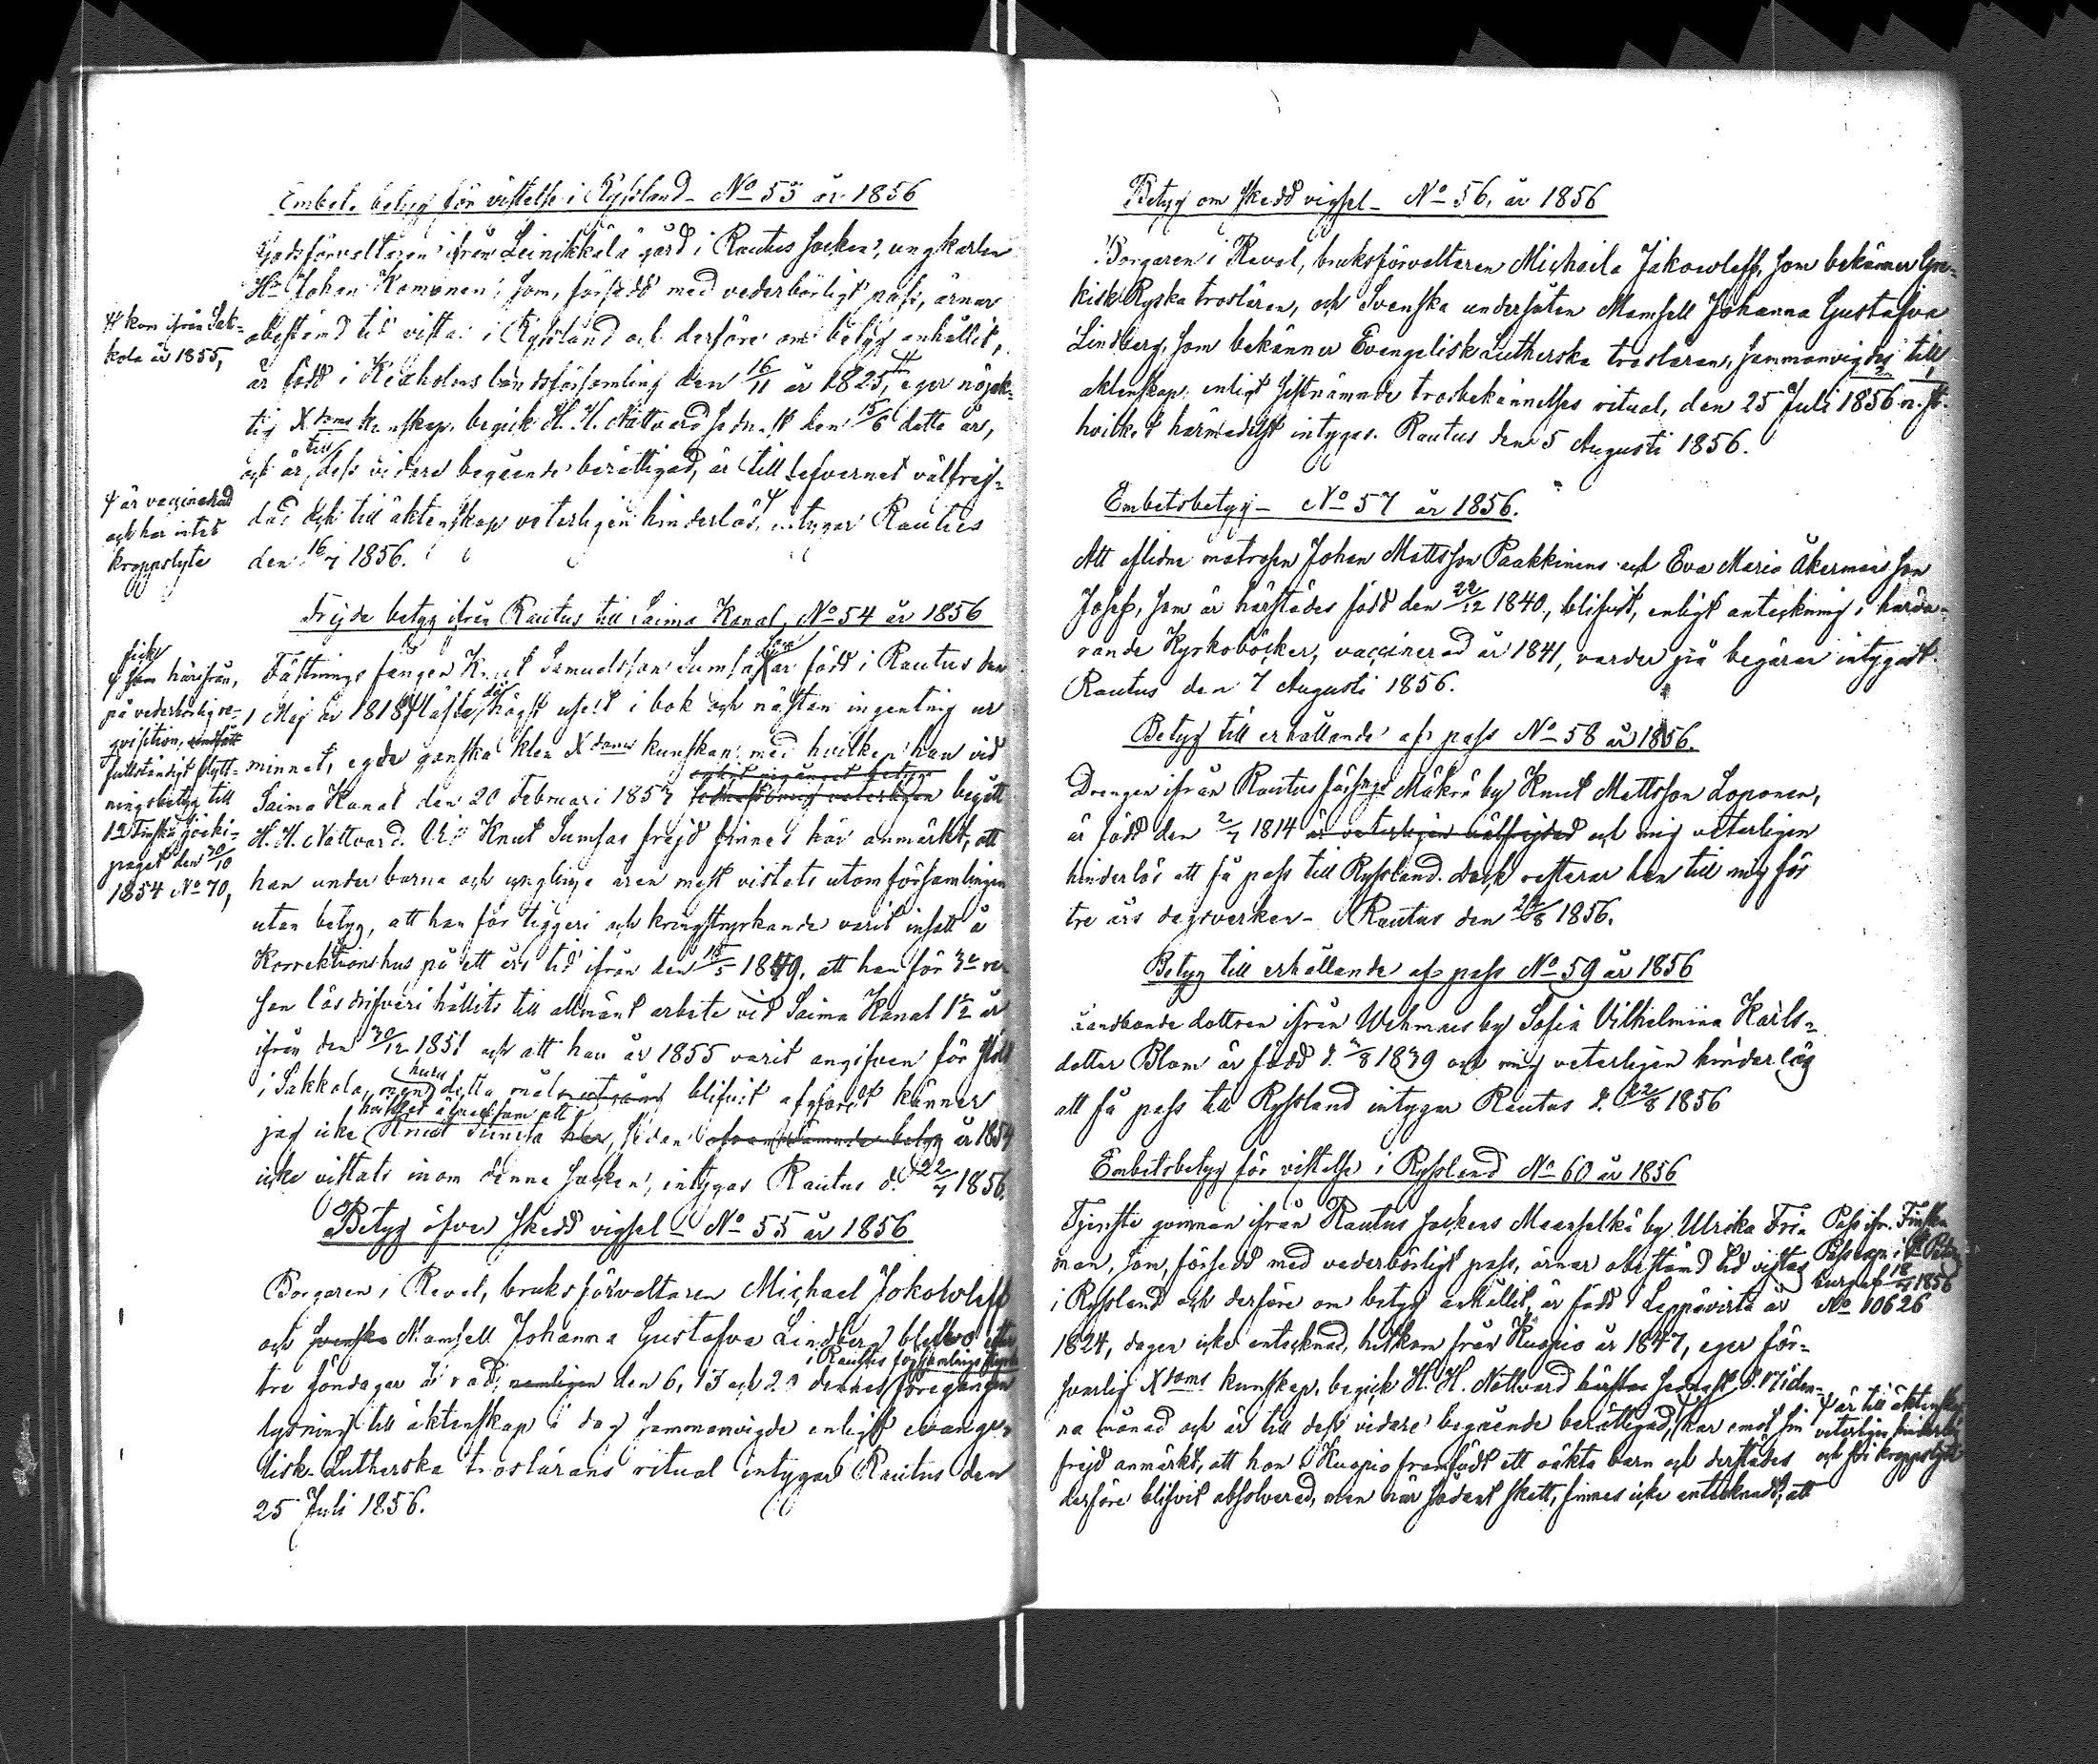 Embets betyg för vistelse i Ryssland - No 53 år 1856
Godsförvaltaren ifrån Leinikkälä gård i Rautus socken, ungkarlen
Hr Johan Komonen, som, försedd med vederbörligt pass, ärnar
obestämd tid vistas i Ryssland och derföre om betyg anhållit,
är född i Kexholms landsförsamling den 16/11 år 1825, # eger nöjak-
tig Xdoms kunskap, begick H. H. Nattvard sednast den 15/6 detta år,
och är till dess vidare begående berättigad, är till lefvernet välfrej-
dad och till äktenskap veterligen hinderlös, ψ intygar Rautus
den 16/7 1856.
# kom ifrån Sak-
kola år 1855,
ψ är vaccinerad
och har intet
kroppslyte
Frejde betyg ifrån Rautus till Saima Kanal, No 54 år 1856
Fästnings fången Knut Samuelsson Sumsa, är född i Rautus den
1 Maj år 1818, ψ läste högst uselt i bok och nästan ingenting ur
minnet, egde ganska klen Xdoms kunskap, med hvilken han vid
enligt betyg
Saima Kanal den 20 Februari 1857 veterligen begått
H. H. Nattvard. Knut Sumsas frejd finnes här anmärkt, att
han under barna och ynglinga åren mest vistats utom församlingen
utan betyg, att han för tiggeri och kringstrykande varit insatt å
Korrektionshus på ett års tid ifrån den 15/5 1849, att han för
lösdrifveri hållits till allmänt arbete vid Saima Kanal 1½ år
ifrån den 30/12 1851 och att han år 1855 varit angifven för stöld
i Sakkola, men huru detta mål blifvit afgjordt känner
jag icke Knut Sumsa har, sedan betyg år 1854
icke vistats inom denna socken, intygas Rautus d. 22/7 1856.
ψ fick
som härifrån,
på vederbörlig re-
qvisition,
fullständigt flytt-
ningsbetyg till
12 Finska
den 30/10
1854 No 70,
Betyg öfver skedd vigsel - No 55 år 1856
Borgaren i Revel, bruksförvaltaren Michael Jakowleff
och Svenska Mamsell Johanna Gustafva Lindberg blefvo efter
i Rautus församlings kyrka
tre söndagar å rad, nemligen den 6, 13 och 20 dennes föregången
lysning till äktenskap i dag sammanvigde enligt evange-
lisk-Lutherska troslärans ritual intygar Rautus den
25 Juli 1856.
Betyg om skedd vigsel - No 56, år 1856
Borgaren i Reval, bruksförvaltaren Michaila Jakowleff, som bekänner Gre-
kisk Ryska trosläran, och Svenska undersåten Mamsell Johanna Gustafva
Lindberg, som bekänner Evangelisk Lutherska trosläran, sammanvigdes till
äktenskap, enligt sistnämnde trosbekännelses ritual, den 25 Juli 1856 n. st.
hvilket härmedelst intygas. Rautus den 5 Augusti 1856.
Embetsbetyg - No 57 år 1856.
Att aflidne matrosen Johan Mattsson Paakkinens och Eva Maria Åkermans son
Josef, som är härstädes född den 22/12 1840, blifvit, enligt anteckning i härva-
rande Kyrkoböcker, vaccinerad år 1841, varder på begäran intygadt.
Rautus den 7 Augusti 1856.
Betyg till erhållande af pass No 58 år 1856.
Drengen ifrån Rautus Mäkrä by Knut Mattsson Loponen,
är född den 2/7 1814 är veterligen välfrejdad och mig veterligen
hinderlös att få pass till Ryssland. dock resterar han till mig för
tre års dagsverken - Rautus den 21/8 1856.
Betyg till erhållande af pass No 59 år 1856
Landbonde dottren ifrån Wehmais by Sofia Vilhelmina Karls-
dotter Blom är född d. 3/8 1839 och mig veterligen hinderlös
att få pass till Ryssland intygar Rautus d. 22/8 1856
Embetsbetyg för vistelse i Ryssland No 60 år 1856
Tjenste qvinnan ifrån Rautus sockens Maanselkä by Ulrika Fri-
man, som, försedd med vederbörligt pass, ärnar obestämd tid vistas
i Ryssland och derföre om betyg anhållit, är född i Leppävirta år
1824, dagen icke antecknad, hitkom från Kuopio år 1847, eger för-
svarlig Xdoms kunskap, begick H. H. Nattvard härstas sednast d. 17 i den-
na månad och är till dess vidare begående berättigad, ψ har emot sin
frejd anmärkt, att hon i Kuopio framfödt ett oäkta barn och derstädes
derföre blifvit absolverad, men när sådant skett, finnes icke antecknadt, att
Pass ifr. Finska
Pass exp. i St. Peters-
burg af 18/7 1856
No 10626
ψ är till äktenskap
veterligen hinderlös
och fri kroppslyte